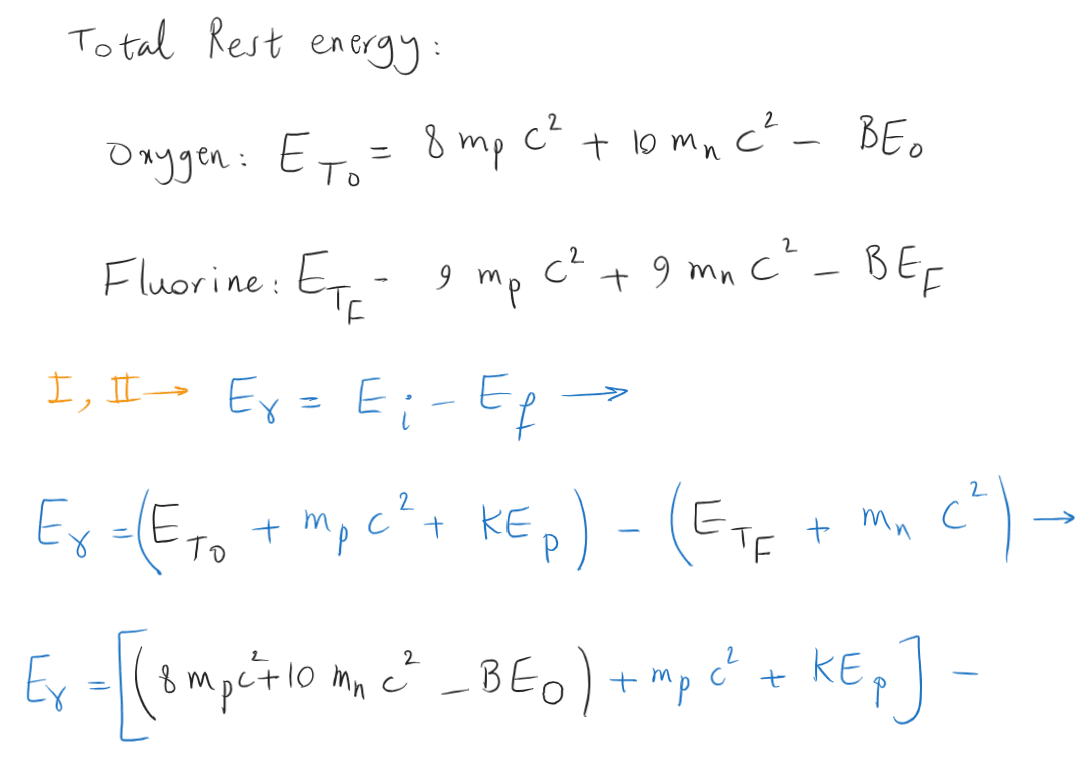 Total Rest energy:
Oxygen: E_TO = 8 mp c² + 10 mn c² - BE_O
Fluorine: E_TF - 9 mp c² + 9 mn c² - BE_F
I, II → Eγ = E_i - E_f →
Eγ = (E_TO + mp c² + KE_p) - (E_TF + mn c²) →
Eγ = [(8 mp c² + 10 mn c² - BE_O) + mp c² + KE_p] -